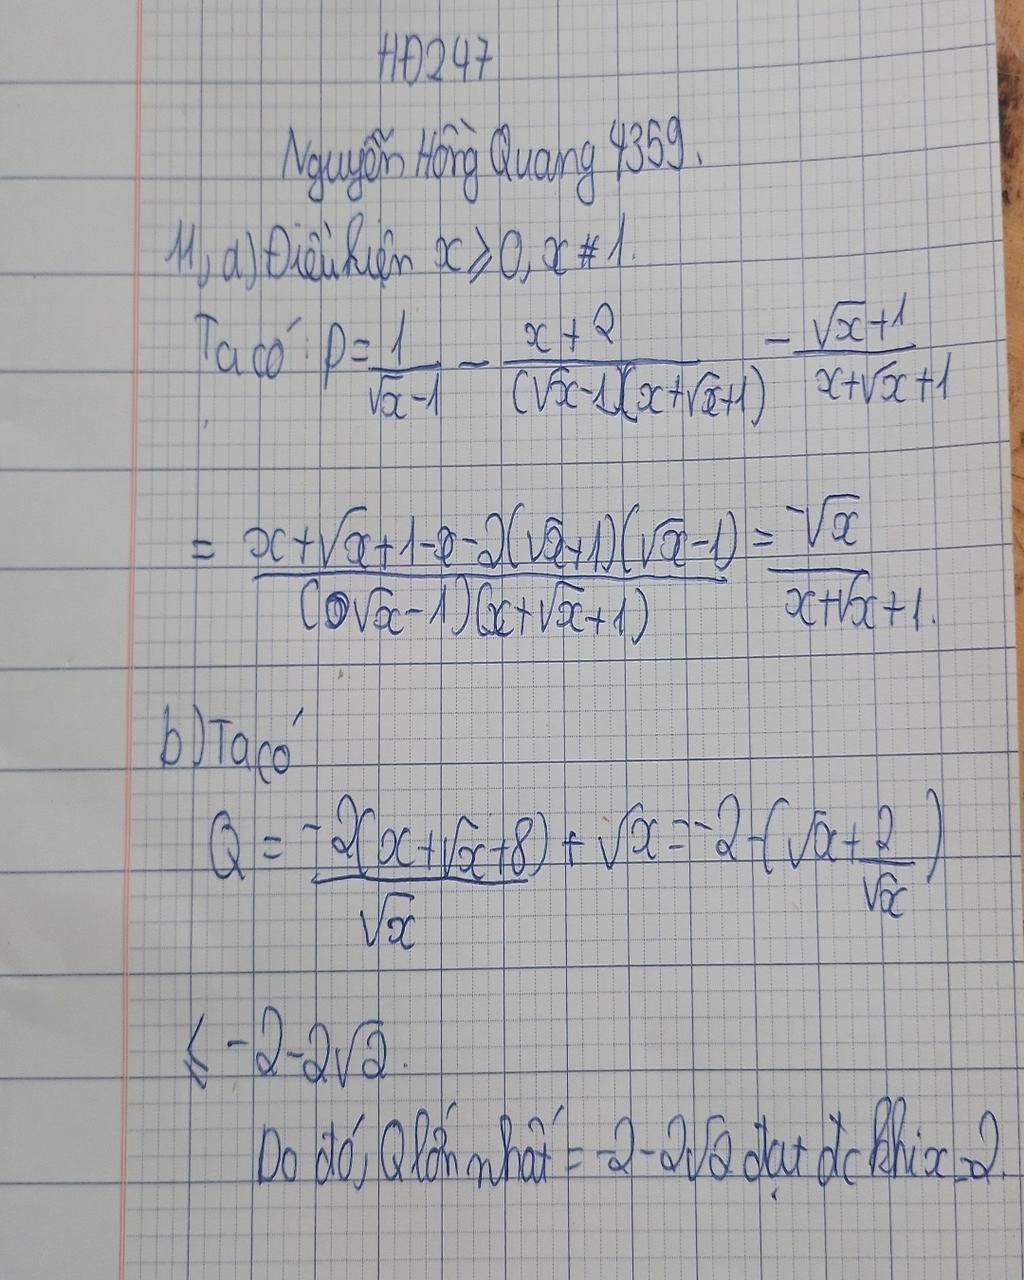 HĐ247
Nguyễn Hồng Quang 4359.
11, a) Điều kiện x ≥ 0, x # 1.
Ta có: P = 1/(√x - 1) - (x + 2)/((√x - 1)(x + √x + 1)) - (√x + 1)/(x + √x + 1)
= (x + √x + 1 - x - 2(√x + 1)(√x - 1))/((√x - 1)(x + √x + 1)) = -√x/(x + √x + 1).
b) Ta có
Q = -2(x + √x + 8)/√x + √x = -2 - (√x + 2/√x)
≤ -2 - 2√2.
Do đó, Q lớn nhất = -2 - 2√2 đạt đc khi x = 2.